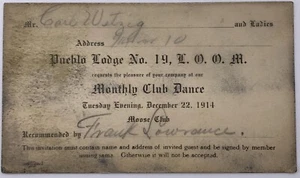 Mr. Carl Wetzig and Ladies
Address
Pueblo Lodge No. 19, L. O. O. M.
requests the pleasure of your company at our
Monthly Club Dance
Tuesday Evening, December 22, 1914
Moose Club
Recommended by Frank Lowrance.
This invitation must contain name and address of invited guest and be signed by member
issuing same. Otherwise it will not be accepted.